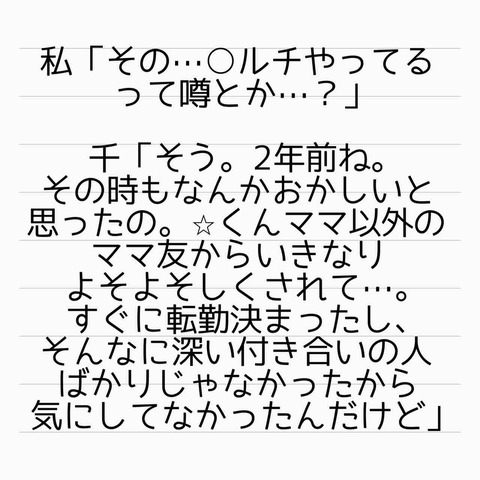 私「その…○ルチやってる
って噂とか…？」
千「そう。2年前ね。
その時もなんかおかしいと
思ったの。☆くんママ以外の
ママ友からいきなり
よそよそしくされて…。
すぐに転勤決まったし、
そんなに深い付き合いの人
ばかりじゃなかったから
気にしてなかったんだけど」